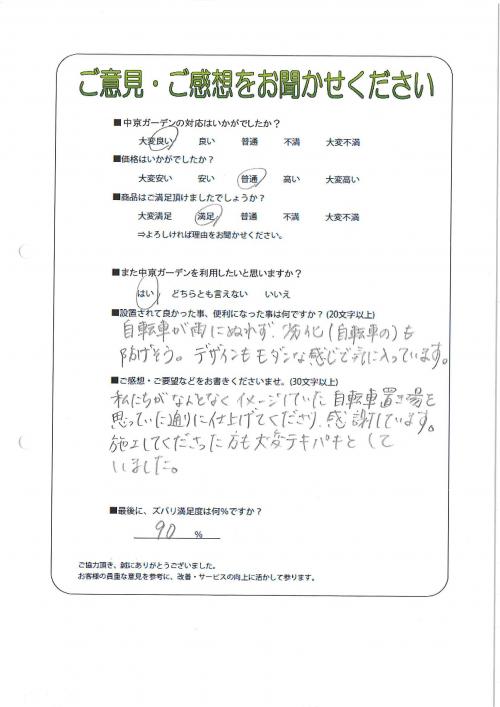 ご意見・ご感想をお聞かせください
■中京ガーデンの対応はいかがでしたか？
大変良い 良い 普通 不満 大変不満
■価格はいかがでしたか？
大変安い 安い 普通 高い 大変高い
■商品はご満足頂けましたでしょうか？
大変満足 満足 普通 不満 大変不満
⇒よろしければ理由をお聞かせください。
■また中京ガーデンを利用したいと思いますか？
はい どちらとも言えない いいえ
■設置されて良かった事、便利になった事は何ですか？(20文字以上)
自転車が雨にぬれず、劣化(自転車の)も
防げそう。デザインもモダンな感じで気に入っています。
■ご感想・ご要望などをお書きくださいませ。(30文字以上)
私たちがなんとなくイメージしていた自転車置き場を
思っていた通りに仕上げてくださり、感謝しています。
施工してくださった方も大変テキパキとして
いました。
■最後に、ズバリ満足度は何%ですか？
90 %
ご協力頂き、誠にありがとうございました。
お客様の貴重な意見を参考に、改善・サービスの向上に活かして参ります。